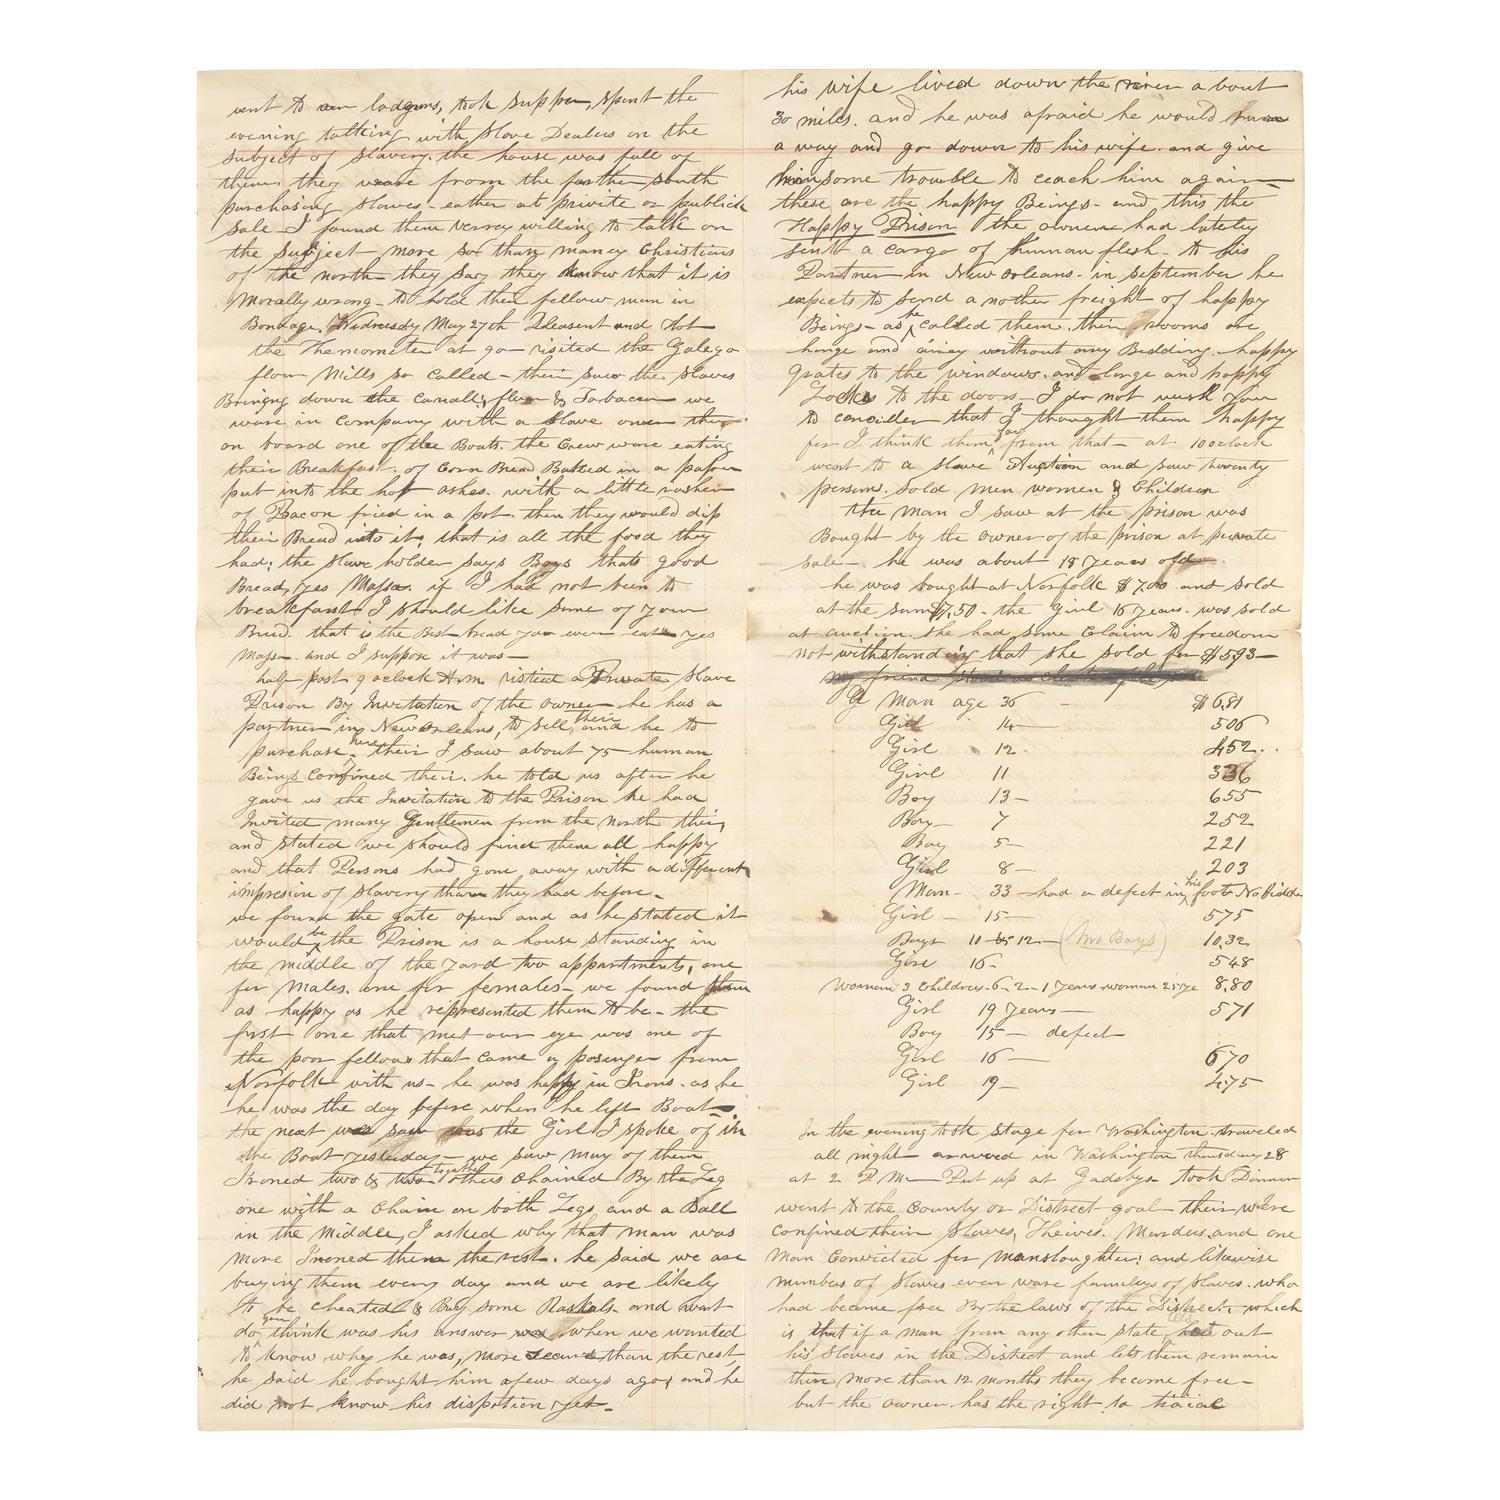 went to our lodgens, took supper, spent the
evening talking with Slave Dealers on the
Subject of Slavery. the house was full of
them. they weare from the farther South
purchasing slaves - eather at private or publick
Sale - I found them verray willing to talk on
the Subject more so than maney Christians
of the north - they say they know that it is
Morally wrong - to hold their fellow man in
Bondage. Wednesday May 27th Pleasent and Hot
the Themometer at 90 - visited the Galego
flour Mills so called - their saw the Slaves
Bringng down the canall, flour & Tobacco we
ware in company with a Slave owner they
on board one of the Boats. the Crew ware eating
their Breakfast. of Corn Bread Baked in a paper
put into the hot ashes. with a little rasher
of Bacon fried in a pot. then they would dip
their Bread into it, that is all the food they
had; the Slave holder says Boys thats good
Bread, yes Massa. if I had not been to
breakfarst I should like some of your
Bread. that is the Best bread you ever eat - yes
Massa. and I suppose it was -
half past 9 oclock A.m visited a Private Slave
Prison By Invitation of the owner - he has a
partner in New orleans, to sell their and he to
purchase here their I saw about 75 - human
Beings Confined their. he told us after he
gave us the Invitation to the Prison he had
Invited many Gentlemen from the North their,
and stated we should find them all happy
and that Persons had gone away with a different
impresion of Slavery than they had before.
we found the gate open and as he stated it
would be the Prison is a house standing in
the middle of the yard two appartments, one
for Males. one for females - we found them
as happy as he represented them to be - the
first one that met our eye was one of
the poor fellows that came a pasenger from
Norfolk with us - he was happy in Irons. as he
he was the day before when he left Boat -
the next we saw was the Girl I spoke of in
the Boat yesterday - we saw many of them
Ironed two & two together others chained By the Leg
one with a Chain on both Legs, and a Ball
in the Middle, I asked why that man was
more Ironed then the rest. he said we are
buying them every day and we are likely
to be cheated & Buy some Raskals and what
do you think was his answer when we wanted
to know why he was, more secure than the rest,
he said he bought him a few days ago, and he
did not know his dispotion yet -
his wife lived down the river a bout
30 miles. and he was afraid he would run
a way and go down to his wife. and give
him some trouble to ceach him again -
these are the happy Beings - and this the
Happy Prison the owner had laterly
sent a cargo of human flesh - to his
Partner in New orleans. in september he
expects to send a nother freight of happy
Beings - as he called them. their rooms are
large and airey without any Bedding. happy
grates to the windows. and large and happy
Locks to the doors - I do not wish you
to concider that I thought them happy
for I think them far from that - at 10 oclock
went to a slave Auction and saw twenty
persons. sold men women & Children
the man I saw at the prison was
Bought by the owner of the prison at private
sale - he was about 18 years old -
he was bought at Norfolk $7,00 and sold
at the sum $7,50 - the Girl 16 years. was sold
at auction. she had some Claim to freedom
not withstanding that she sold for $593 -
my friend
A Man age 36 - $681
Girl 14 - 506
Girl 12. 452.
Girl 11 336
Boy 13 - 655
Boy - 7 252
Boy 5 - 221
Girl 8 - 203
Man - 33 - had a defect in his foot. No Bidder
Girl - 15 - 575
Boys 10 - 12 - (two Boys) 10,32
Girl 16 - 548
Woman 3 Children. 6 - 2 - 1 years woman 25 ye 8,80
Girl 19 years - 571
Boy 15 - defect
Girl 16 - 670
Girl 19 - 475
In the evening took Stage for Washington. traveled
all night - arived in Washington thursday 28
at 2 P.M. - Put up at Gadsbys took Dinner
went to the County or District goal - their were
confined their Slaves, Theives. Murders. and one
Man Convicted for Manslaughter; and likewise
numbers of Slaves even ware familys of Slaves. who
had became free By the laws of the District. which
is that if a man from any other state lets out
his Slaves in the District and lets them remain
their more than 12 months they become free -
but the owner has the right to traial